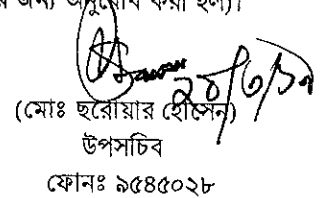 র জন্য অনুরোধ করা হল।
(মোঃ ছরোয়ার হোসেন)
উপসচিব
ফোনঃ ৯৫৪৫০২৮